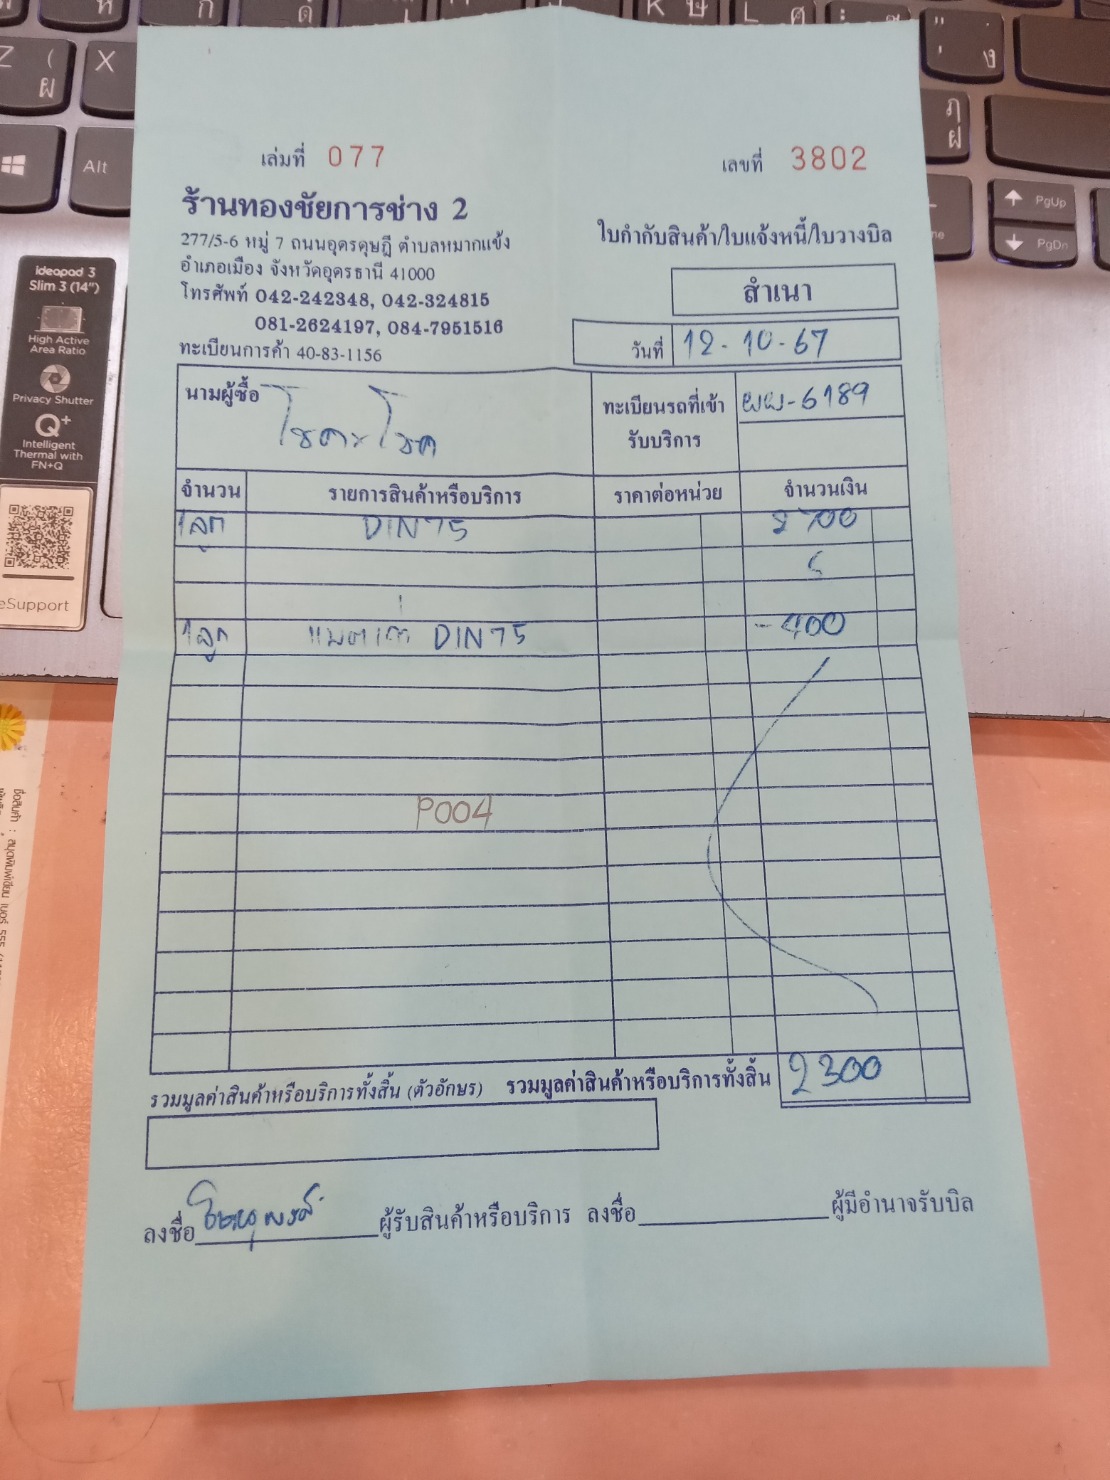 เล่มที่ 077
เลขที่ 3802
ร้านทองชัยการช่าง 2
277/5-6 หมู่ 7 ถนนอุดรดุษฎี ตำบลหมากแข้ง
อำเภอเมือง จังหวัดอุดรธานี 41000
โทรศัพท์ 042-242348, 042-324815
081-2624197, 084-7951516
ทะเบียนการค้า 40-83-1156
ใบกำกับสินค้า/ใบแจ้งหนี้/ใบวางบิล
สำเนา
วันที่ 12-10-67
นามผู้ซื้อ
ทะเบียนรถที่เข้า
รับบริการ
ผผ-6189
จำนวน รายการสินค้าหรือบริการ ราคาต่อหน่วย จำนวนเงิน
1ลูก DIN75 2700
1ลูก DIN75 -400
P004
รวมมูลค่าสินค้าหรือบริการทั้งสิ้น (ตัวอักษร) รวมมูลค่าสินค้าหรือบริการทั้งสิ้น 2300
ลงชื่อ ผู้รับสินค้าหรือบริการ ลงชื่อ ผู้มีอำนาจรับบิล
ideapad 3
Slim 3 (14")
High Active
Area Ratio
Privacy Shutter
Q+
Intelligent
Thermal with
FN+Q
eSupport
Alt
Z ( ผ
X
PgUp
PgDn